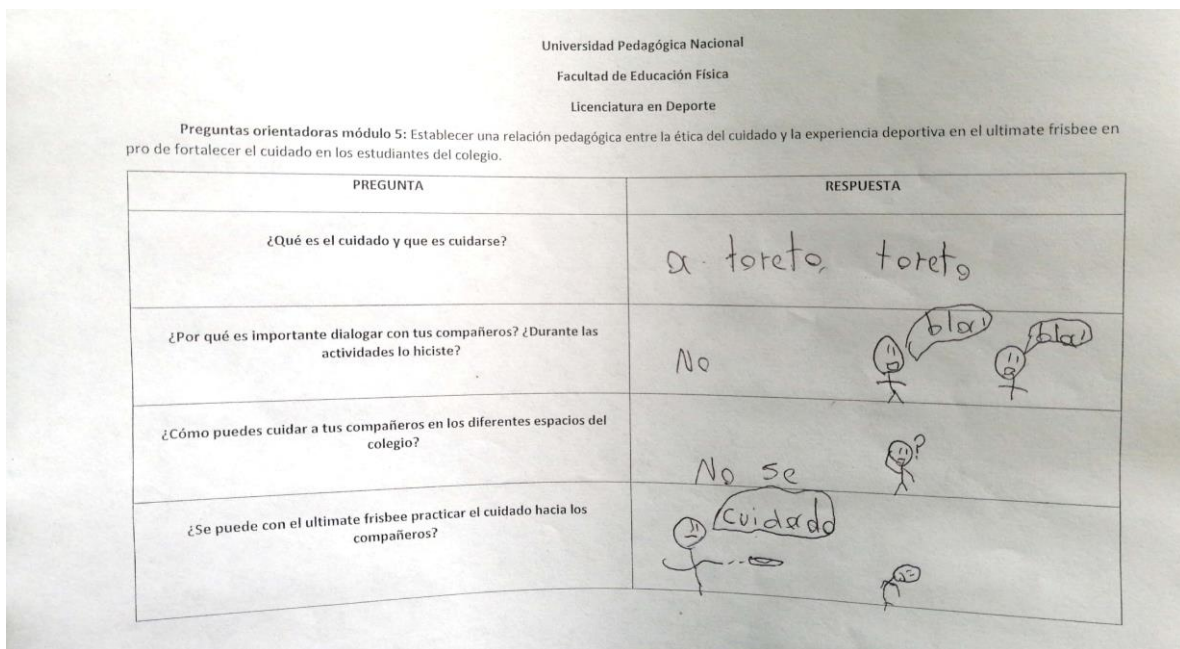 Universidad Pedagógica Nacional
Facultad de Educación Física
Licenciatura en Deporte
Preguntas orientadoras módulo 5: Establecer una relación pedagógica entre la ética del cuidado y la experiencia deportiva en el ultimate frisbee en
pro de fortalecer el cuidado en los estudiantes del colegio.
PREGUNTA
RESPUESTA
¿Qué es el cuidado y que es cuidarse?
a toreto, toreto
¿Por qué es importante dialogar con tus compañeros? ¿Durante las
actividades lo hiciste?
No
bla
bla
¿Cómo puedes cuidar a tus compañeros en los diferentes espacios del
colegio?
No se
?
¿Se puede con el ultimate frisbee practicar el cuidado hacia los
compañeros?
cuidado